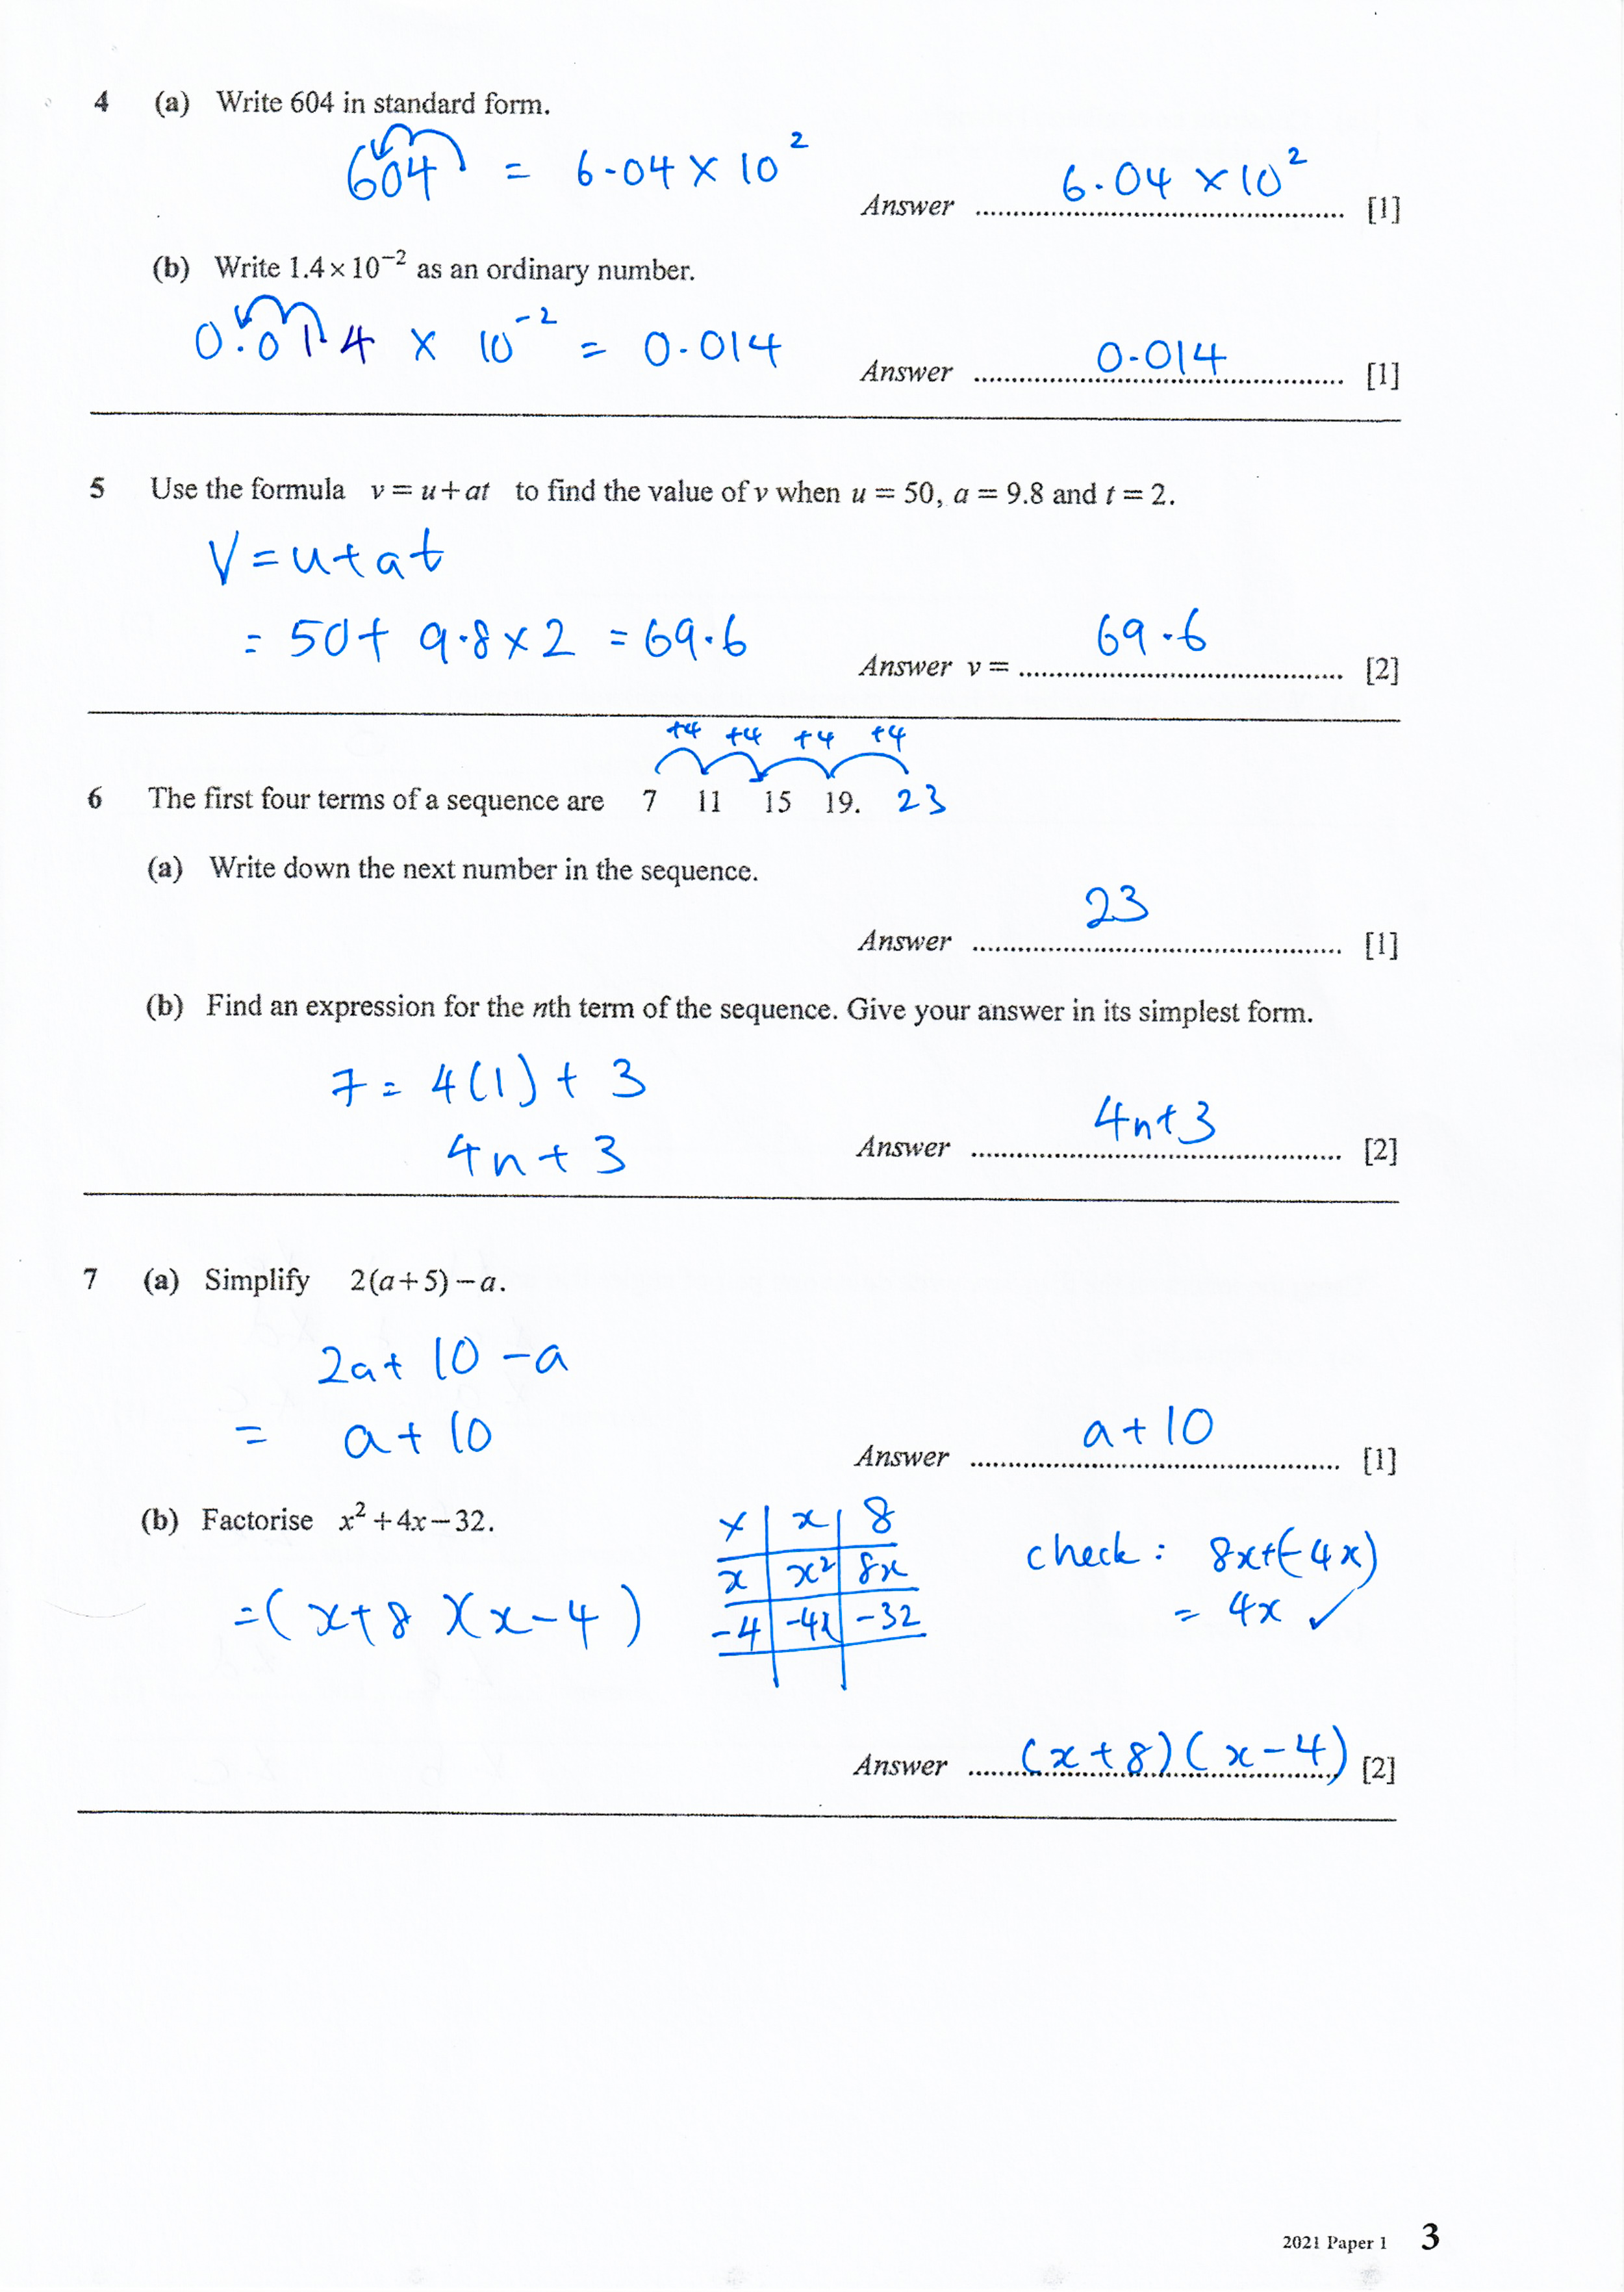 4 (a) Write 604 in standard form.
604 = 6.04 × 10²
Answer 6.04 × 10² [1]
(b) Write 1.4 × 10⁻² as an ordinary number.
0.01.4 × 10⁻² = 0.014
Answer 0.014 [1]
5 Use the formula v = u + at to find the value of v when u = 50, a = 9.8 and t = 2.
V = u + at
= 50 + 9.8 × 2 = 69.6
Answer v = 69.6 [2]
+4 +4 +4 +4
6 The first four terms of a sequence are 7 11 15 19. 23
(a) Write down the next number in the sequence.
23
Answer [1]
(b) Find an expression for the nth term of the sequence. Give your answer in its simplest form.
7 = 4(1) + 3
4n + 3
Answer 4n+3 [2]
7 (a) Simplify 2(a + 5) − a.
2a + 10 − a
= a + 10
Answer a + 10 [1]
(b) Factorise x² + 4x − 32.
= (x+8)(x−4)
× x 8
x x² 8x
−4 −4x −32
check: 8x+(−4x)
= 4x ✓
Answer (x+8)(x−4) [2]
2021 Paper 1 3